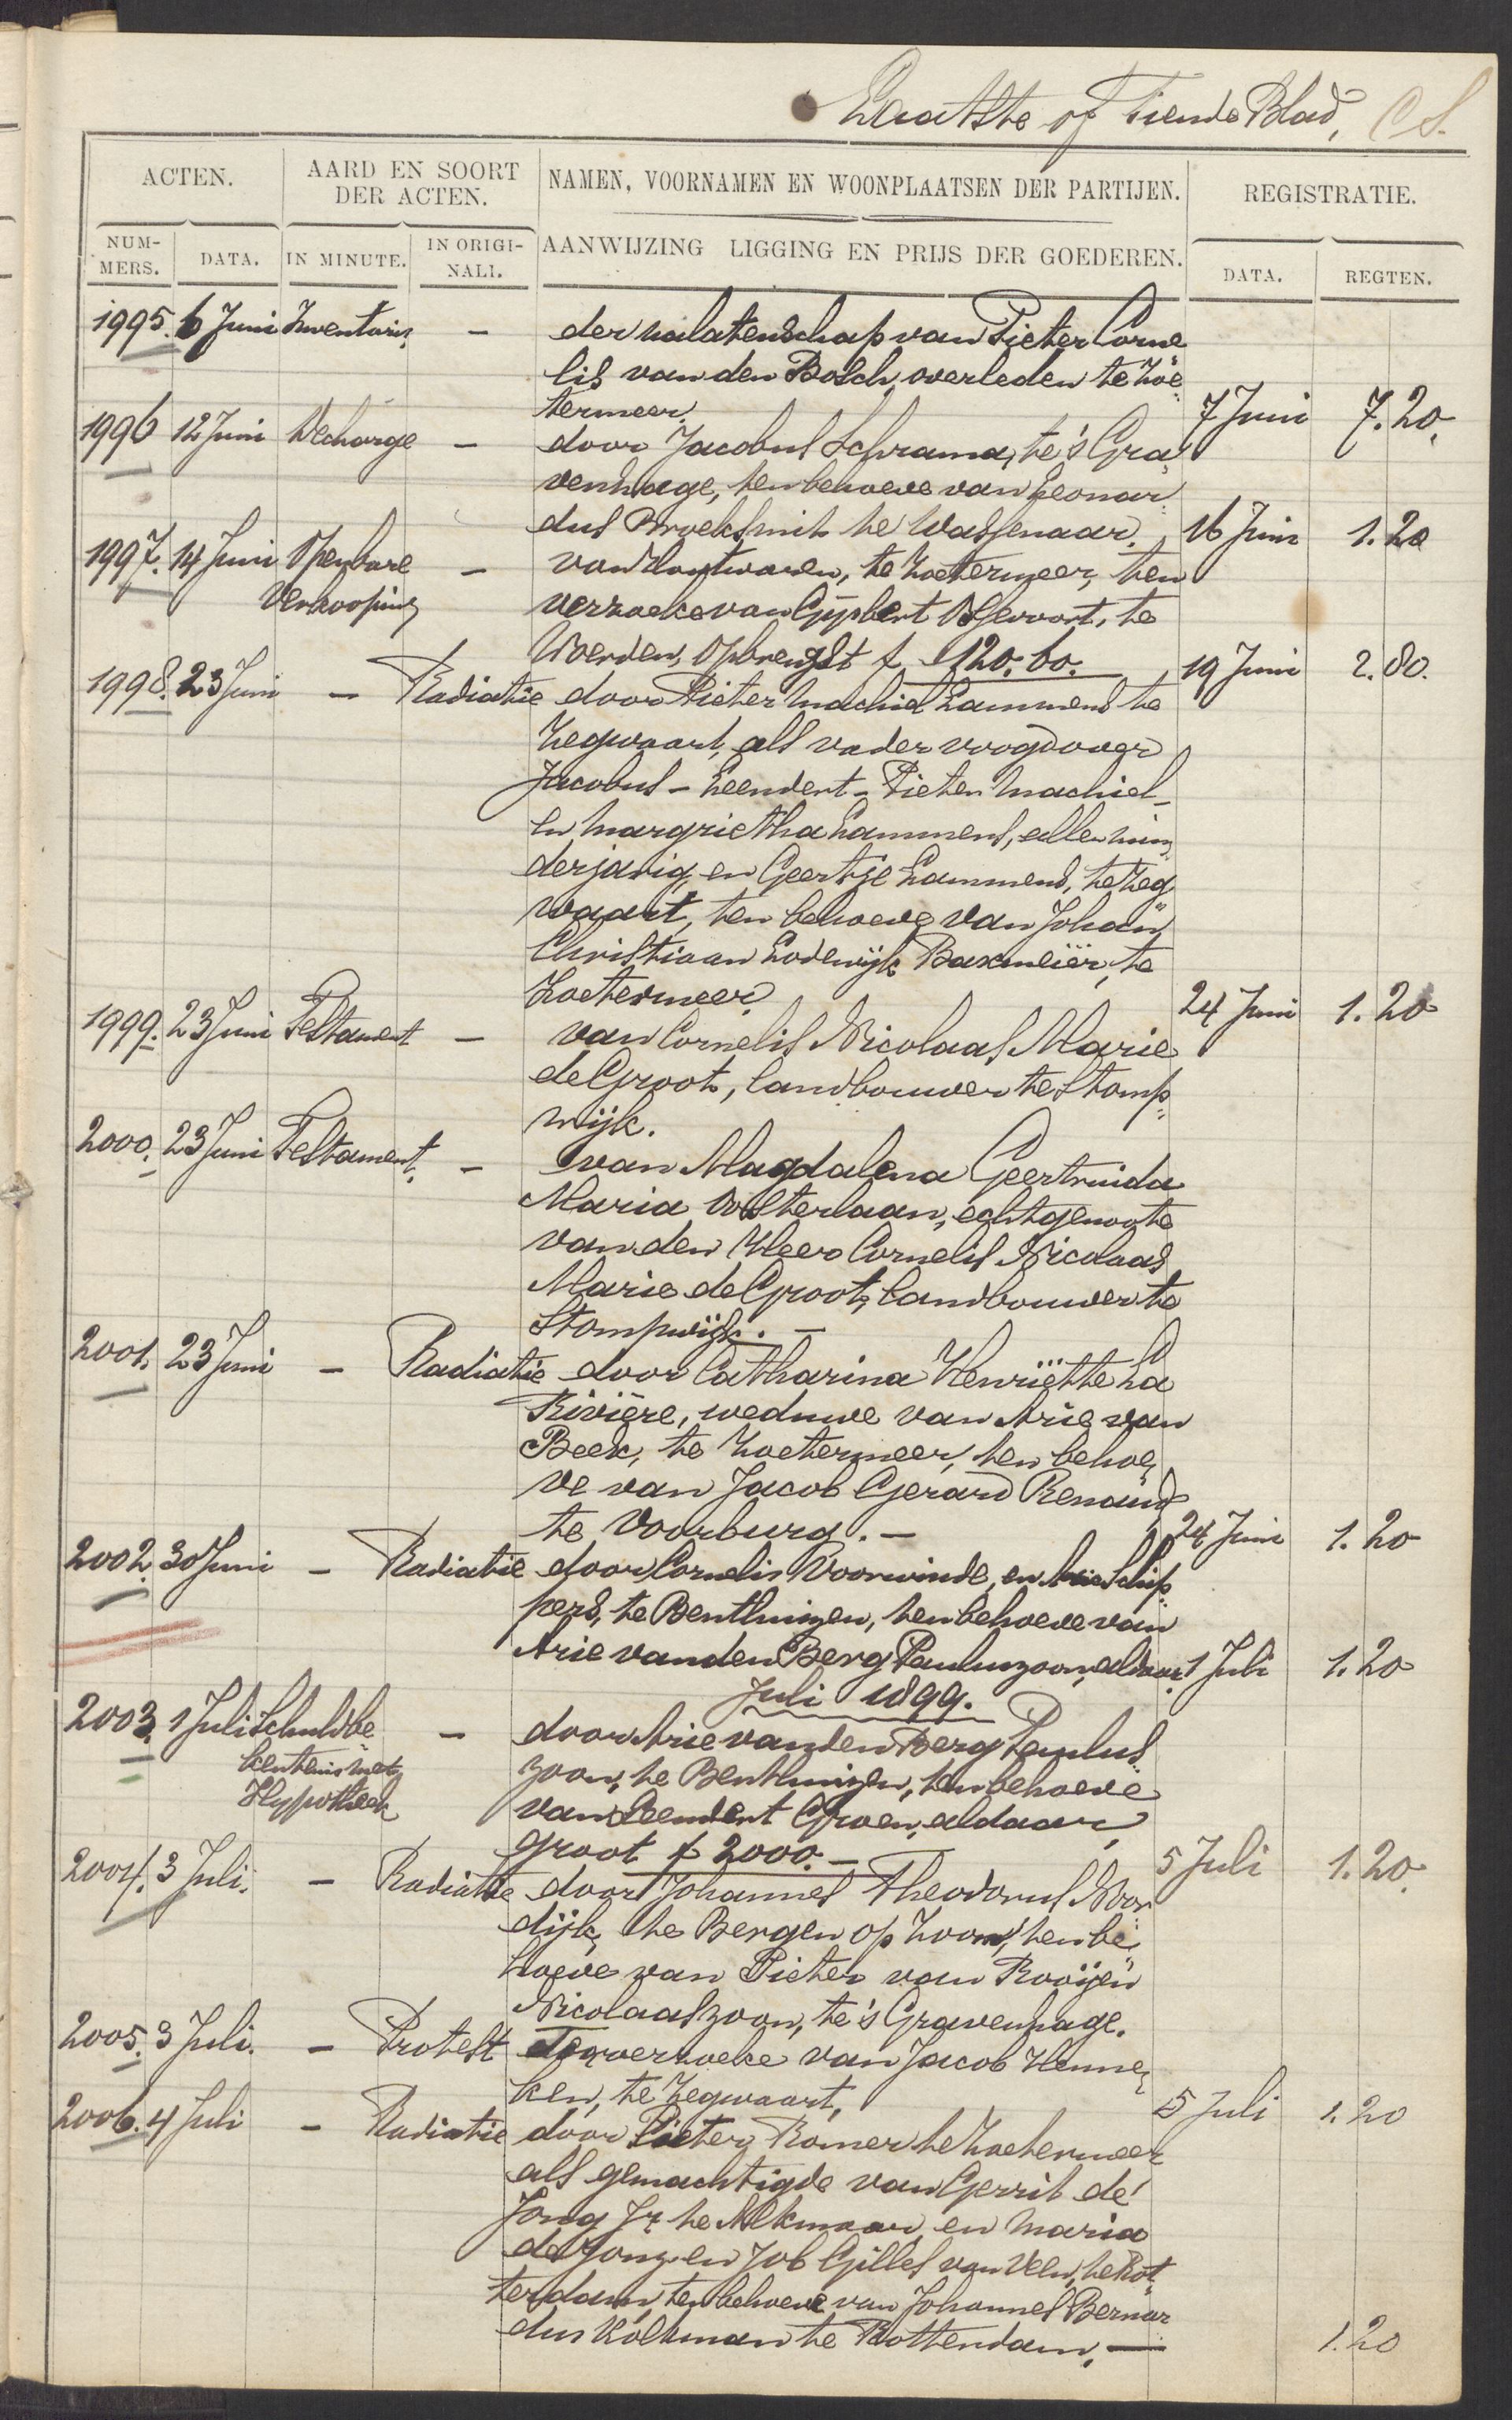 Laatste of Tiende Blad, CS.
ACTEN.
AARD EN SOORT DER ACTEN.
NAMEN, VOORNAMEN EN WOONPLAATSEN DER PARTIJEN.
REGISTRATIE.
NUM-MERS.
DATA.
IN MINUTE.
IN ORIGI-NALI.
AANWIJZING LIGGING EN PRIJS DER GOEDEREN.
DATA.
REGTEN.
1995. 6 Juni Inventaris – der nalatenschap van Pieter Corne
lis van den Bosch, overleden te Zoe
termeer. 7 Juni 7.20.
1996 12 Juni Decharge – door Jacobus Schrama, te 's Gra
venhage, ten behoeve van Leonar
dus Broeksmit te Wassenaar. 16 Juni 1.20
1997. 14 Juni Openbare – van houtwaren, te Zoetermeer, ten
Verkooping verzoeke van Gijsbert, te
Woerden, Opbrengst f 120.60. 19 Juni 2.80.
1998. 23 Juni – Radiatie door Pieter Machiel Lammens te
Zegwaart, als vader voogd over
Jacobus – Leendert – Pieter Machiel –
en Margrietha Lammens, allen min
derjarig, en Geertje Lammens, te Zeg
waart, ten behoeve van Johan
Christiaan Lodewijk Baxmeiër, te
Zoetermeer 24 Juni 1.20
1999. 23 Juni Testament – van Cornelis Nicolaas Marie
de Groot, landbouwer te Stomp
wijk.
2000. 23 Juni Testament. – van Magdalena Geertruida
Maria Oosterlaan, echtgenoote
van den Heer Cornelis Nicolaas
Marie de Groot, landbouwer te
Stompwijk. –
2001. 23 Juni – Radiatie door Catharina Henriëtte La
Rivière, weduwe van Arie van
Beek, te Zoetermeer, ten behoe
ve van Jacob Gerard Renaud
te Voorburg. – 24 Juni 1.20
2002. 30 Juni – Radiatie door Cornelis Voorwinde, en Arie Schip
pers, te Benthuizen, ten behoeve van
Arie van den Berg Pauluszoon, aldaar. 1 Juli 1.20
Juli 1899.
2003. 1 Juli Schuldbe – door Arie van den Berg Paulus
kentenis met zoon, te Benthuizen, ten behoeve
Hypotheek van Leendert Groen, aldaar,
groot f 2000. – 5 Juli 1.20.
2004. 3 Juli. – Radiatie door Johannes Theodorus Noor
dijk, te Bergen op Zoom, ten be
hoeve van Pieter van Rooijen
Nicolaaszoon, te 's Gravenhage.
2005. 3 Juli. – Protest Ten verzoeke van Jacob Henne
ken, te Zegwaart, 5 Juli 1.20
2006. 4 Juli – Radiatie door Pieter Romer te Zoetermeer
als gemachtigde van Gerrit de
Jong Jr te Alkmaar, en Maria
de Jong en Job Gilles van Veen, te Rot
terdam, ten behoeve van Johannes Bernar
dus Kolkman te Rotterdam. – 1.20